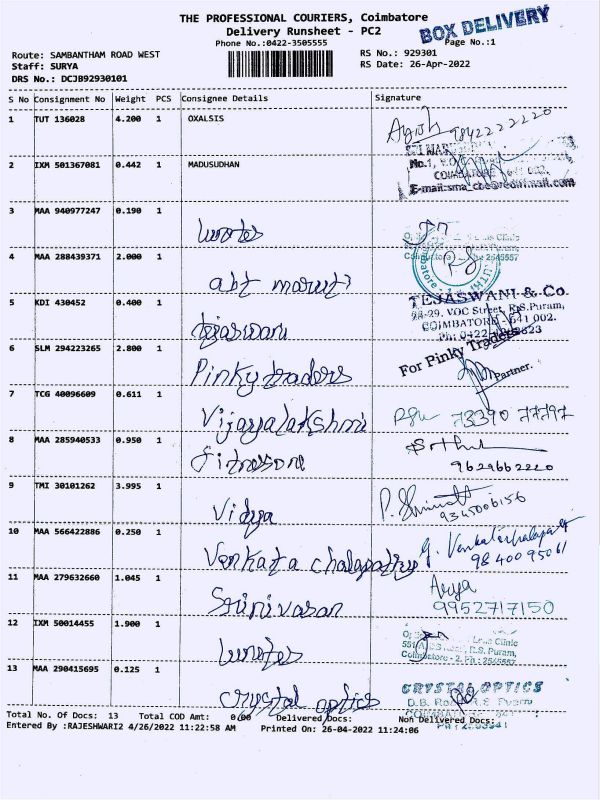 THE PROFESSIONAL COURIERS, Coimbatore
Delivery Runsheet - PC2
BOX DELIVERY
Phone No.:0422-3505555
Page No.:1
Route: SAMBANTHAM ROAD WEST
RS No.: 929301
Staff: SURYA
RS Date: 26-Apr-2022
DRS No.: DCJB92930101
S No Consignment No Weight PCS Consignee Details Signature
1 TUT 136028 4.200 1 OXALSIS
9842222220
2 IXM 501367081 0.442 1 MADUSUDHAN
No.1,
COIMBATORE
E-mail:sma_cbe@rediffmail.com
3 MAA 940977247 0.190 1
Clinic
R.S. Puram,
2545557
4 MAA 288439371 2.000 1 abt maruti
5 KDI 430452 0.400 1 tejaswani
TEJASWANI & Co.
28-29, VOC Street, R.S.Puram,
COIMBATORE - 641 002.
6 SLM 294223265 2.800 1 Pinky traders
For Pinky Traders
Partner.
7 TCG 40096609 0.611 1 Vijayalakshmi
73390 77797
8 MAA 285940533 0.950 1
9629662220
9 TMI 30101262 3.995 1 Vidya
9345006156
10 MAA 566422886 0.250 1 Venkata chalapathy
G. Venkatachalapathy
98400 95061
11 MAA 279632660 1.045 1 Srinivasan
Arya
9952717150
12 IXM 50014455 1.900 1
Clinic
R.S. Puram,
Coimbatore - 2. Ph : 2545557
13 MAA 290415695 0.125 1 crystal optics
CRYSTAL OPTICS
Total No. Of Docs: 13 Total COD Amt: 0/00 Delivered Docs: Non Delivered Docs:
Entered By :RAJESHWARI2 4/26/2022 11:22:58 AM Printed On: 26-04-2022 11:24:06